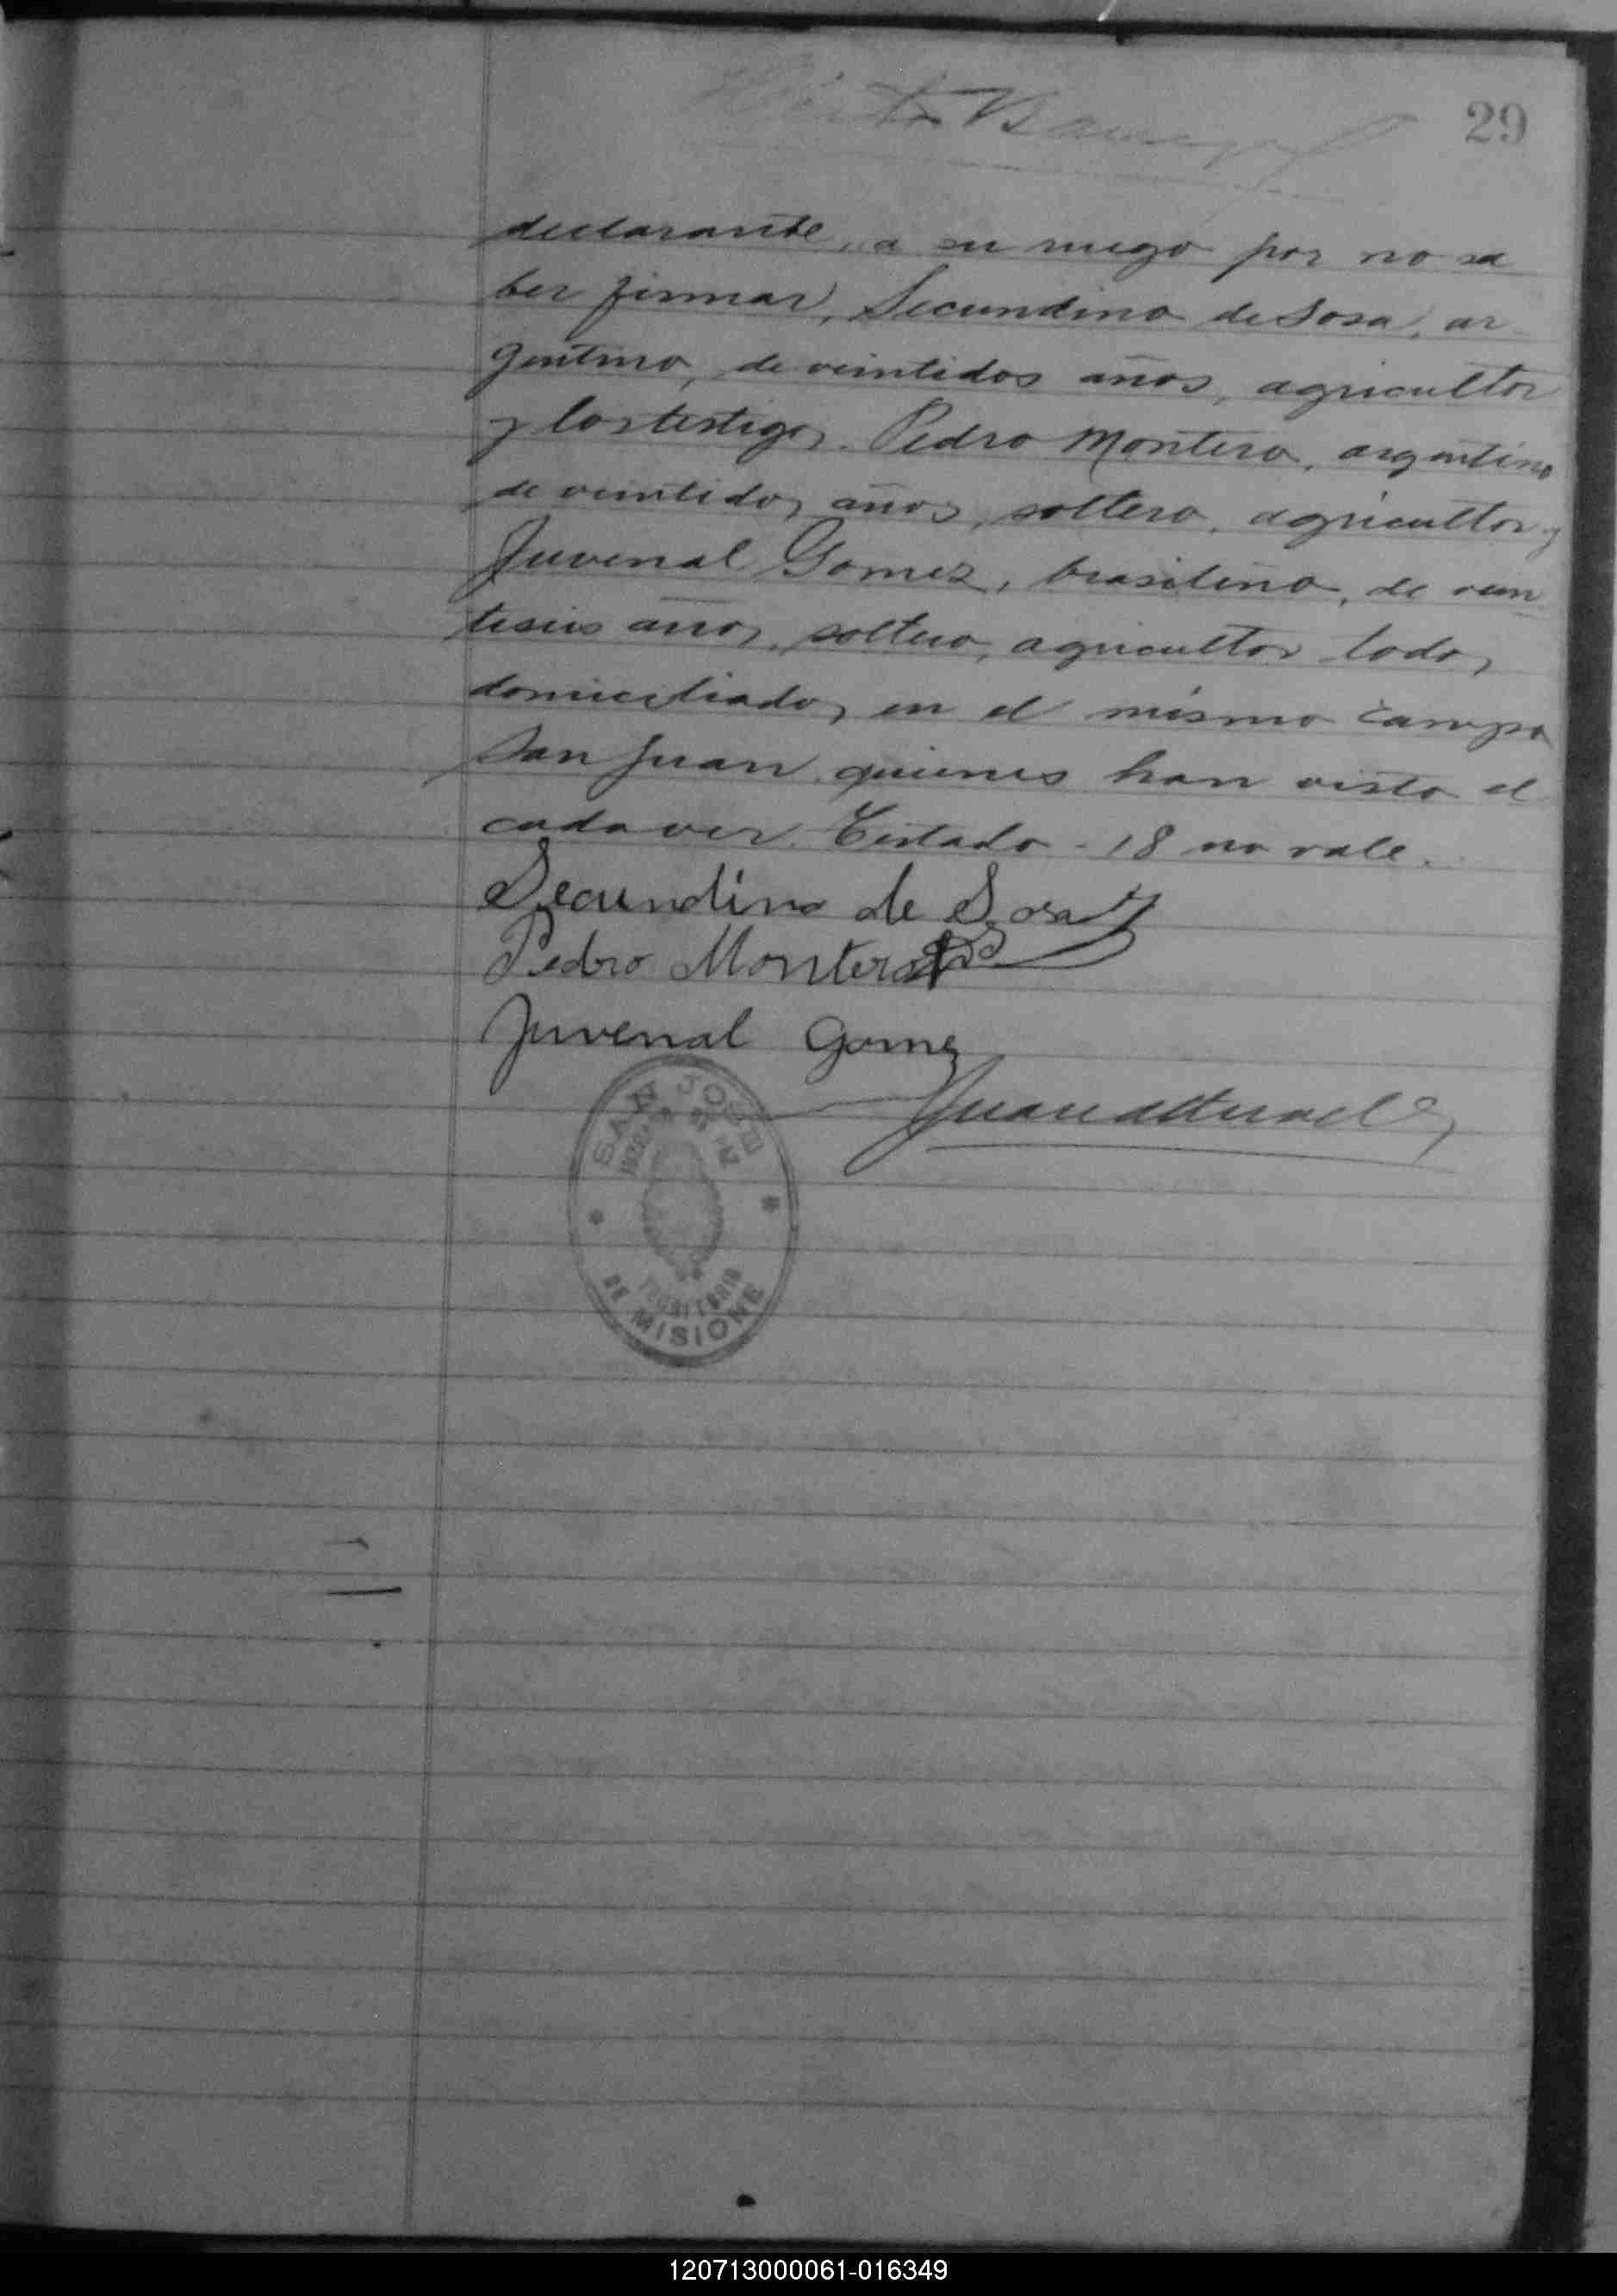 29
declarante, a su ruego por no sa
ber firmar, Secundino de Sosa, ar
gentino, de veintidos años, agricultor
y los testigos. Pedro Montero, argentino
de veintidos años, soltero, agricultor y
Juvenal Gomez, brasileño, de vein
tiseis años, soltero, agricultor todos
domiciliados en el mismo Campo
San Juan, quienes han visto el
cadaver. Testado - 18 no vale.
Secundino de Sosa
Pedro Montero
Juvenal Gomez
Juan
SAN JOSE
TERRITORIO
DE MISIONES
120713000061-016349